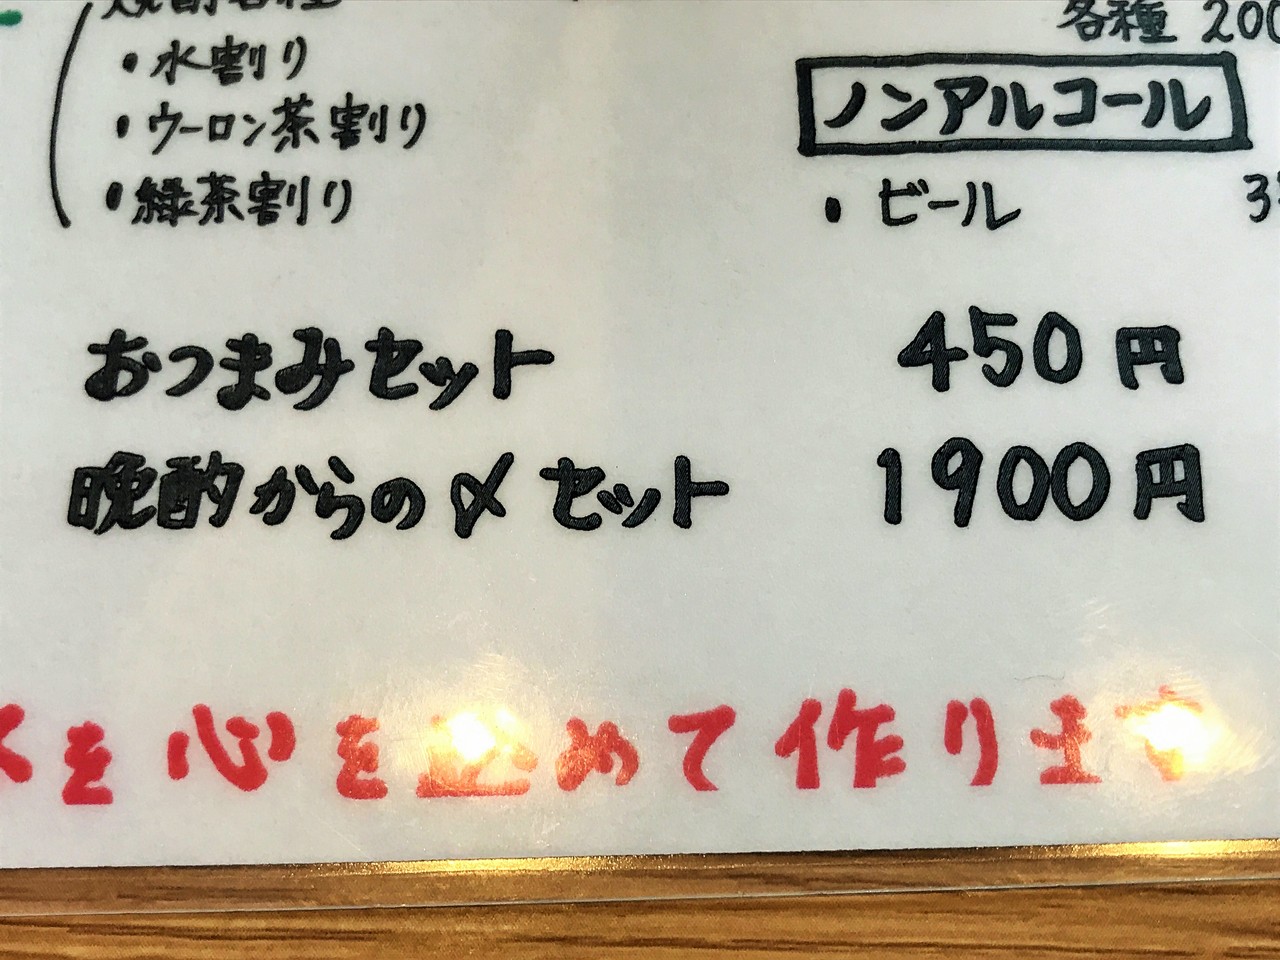 ・水割り
・ウーロン茶割り
・緑茶割り
各種 200
ノンアルコール
・ビール
おつまみセット 450円
晩酌からの〆セット 1900円
を心を込めて作ります